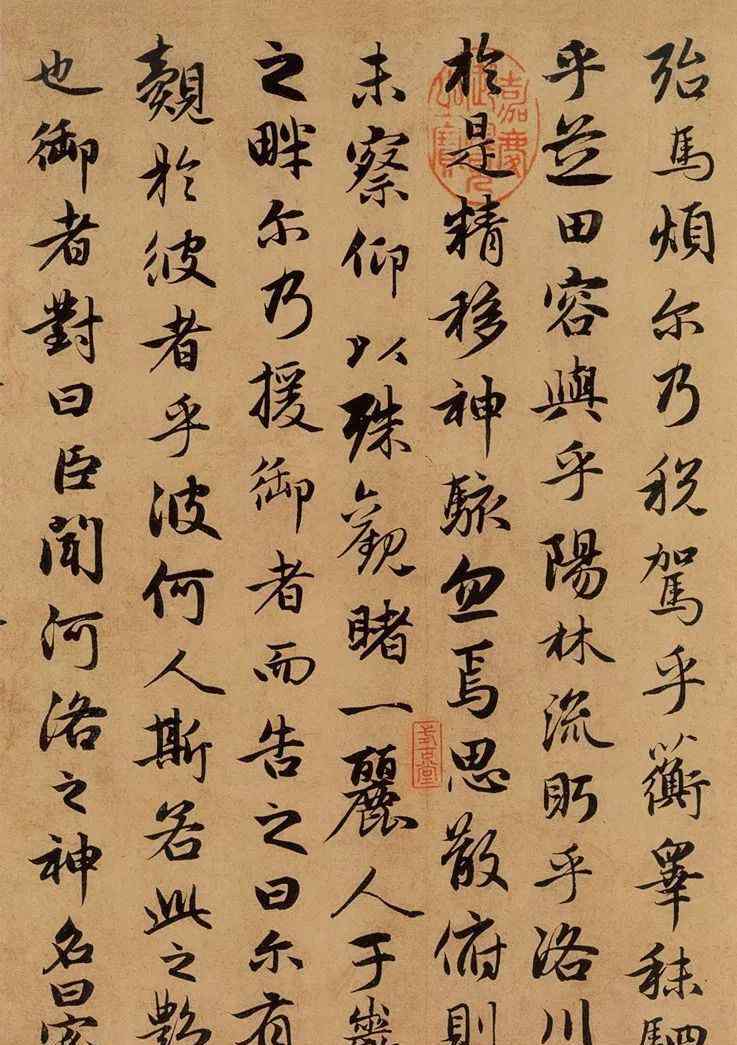 殆馬煩尔乃税駕乎蘅皋秣駟
乎芝田容與乎陽林流眄乎洛川
於是精移神駭忽焉思散俯則
未察仰以殊觀睹一麗人于巖
之畔尔乃援御者而告之曰尔有
覿於彼者乎彼何人斯若此之艷
也御者對曰臣聞河洛之神名曰宓
嘉慶御覽之寶
式古堂